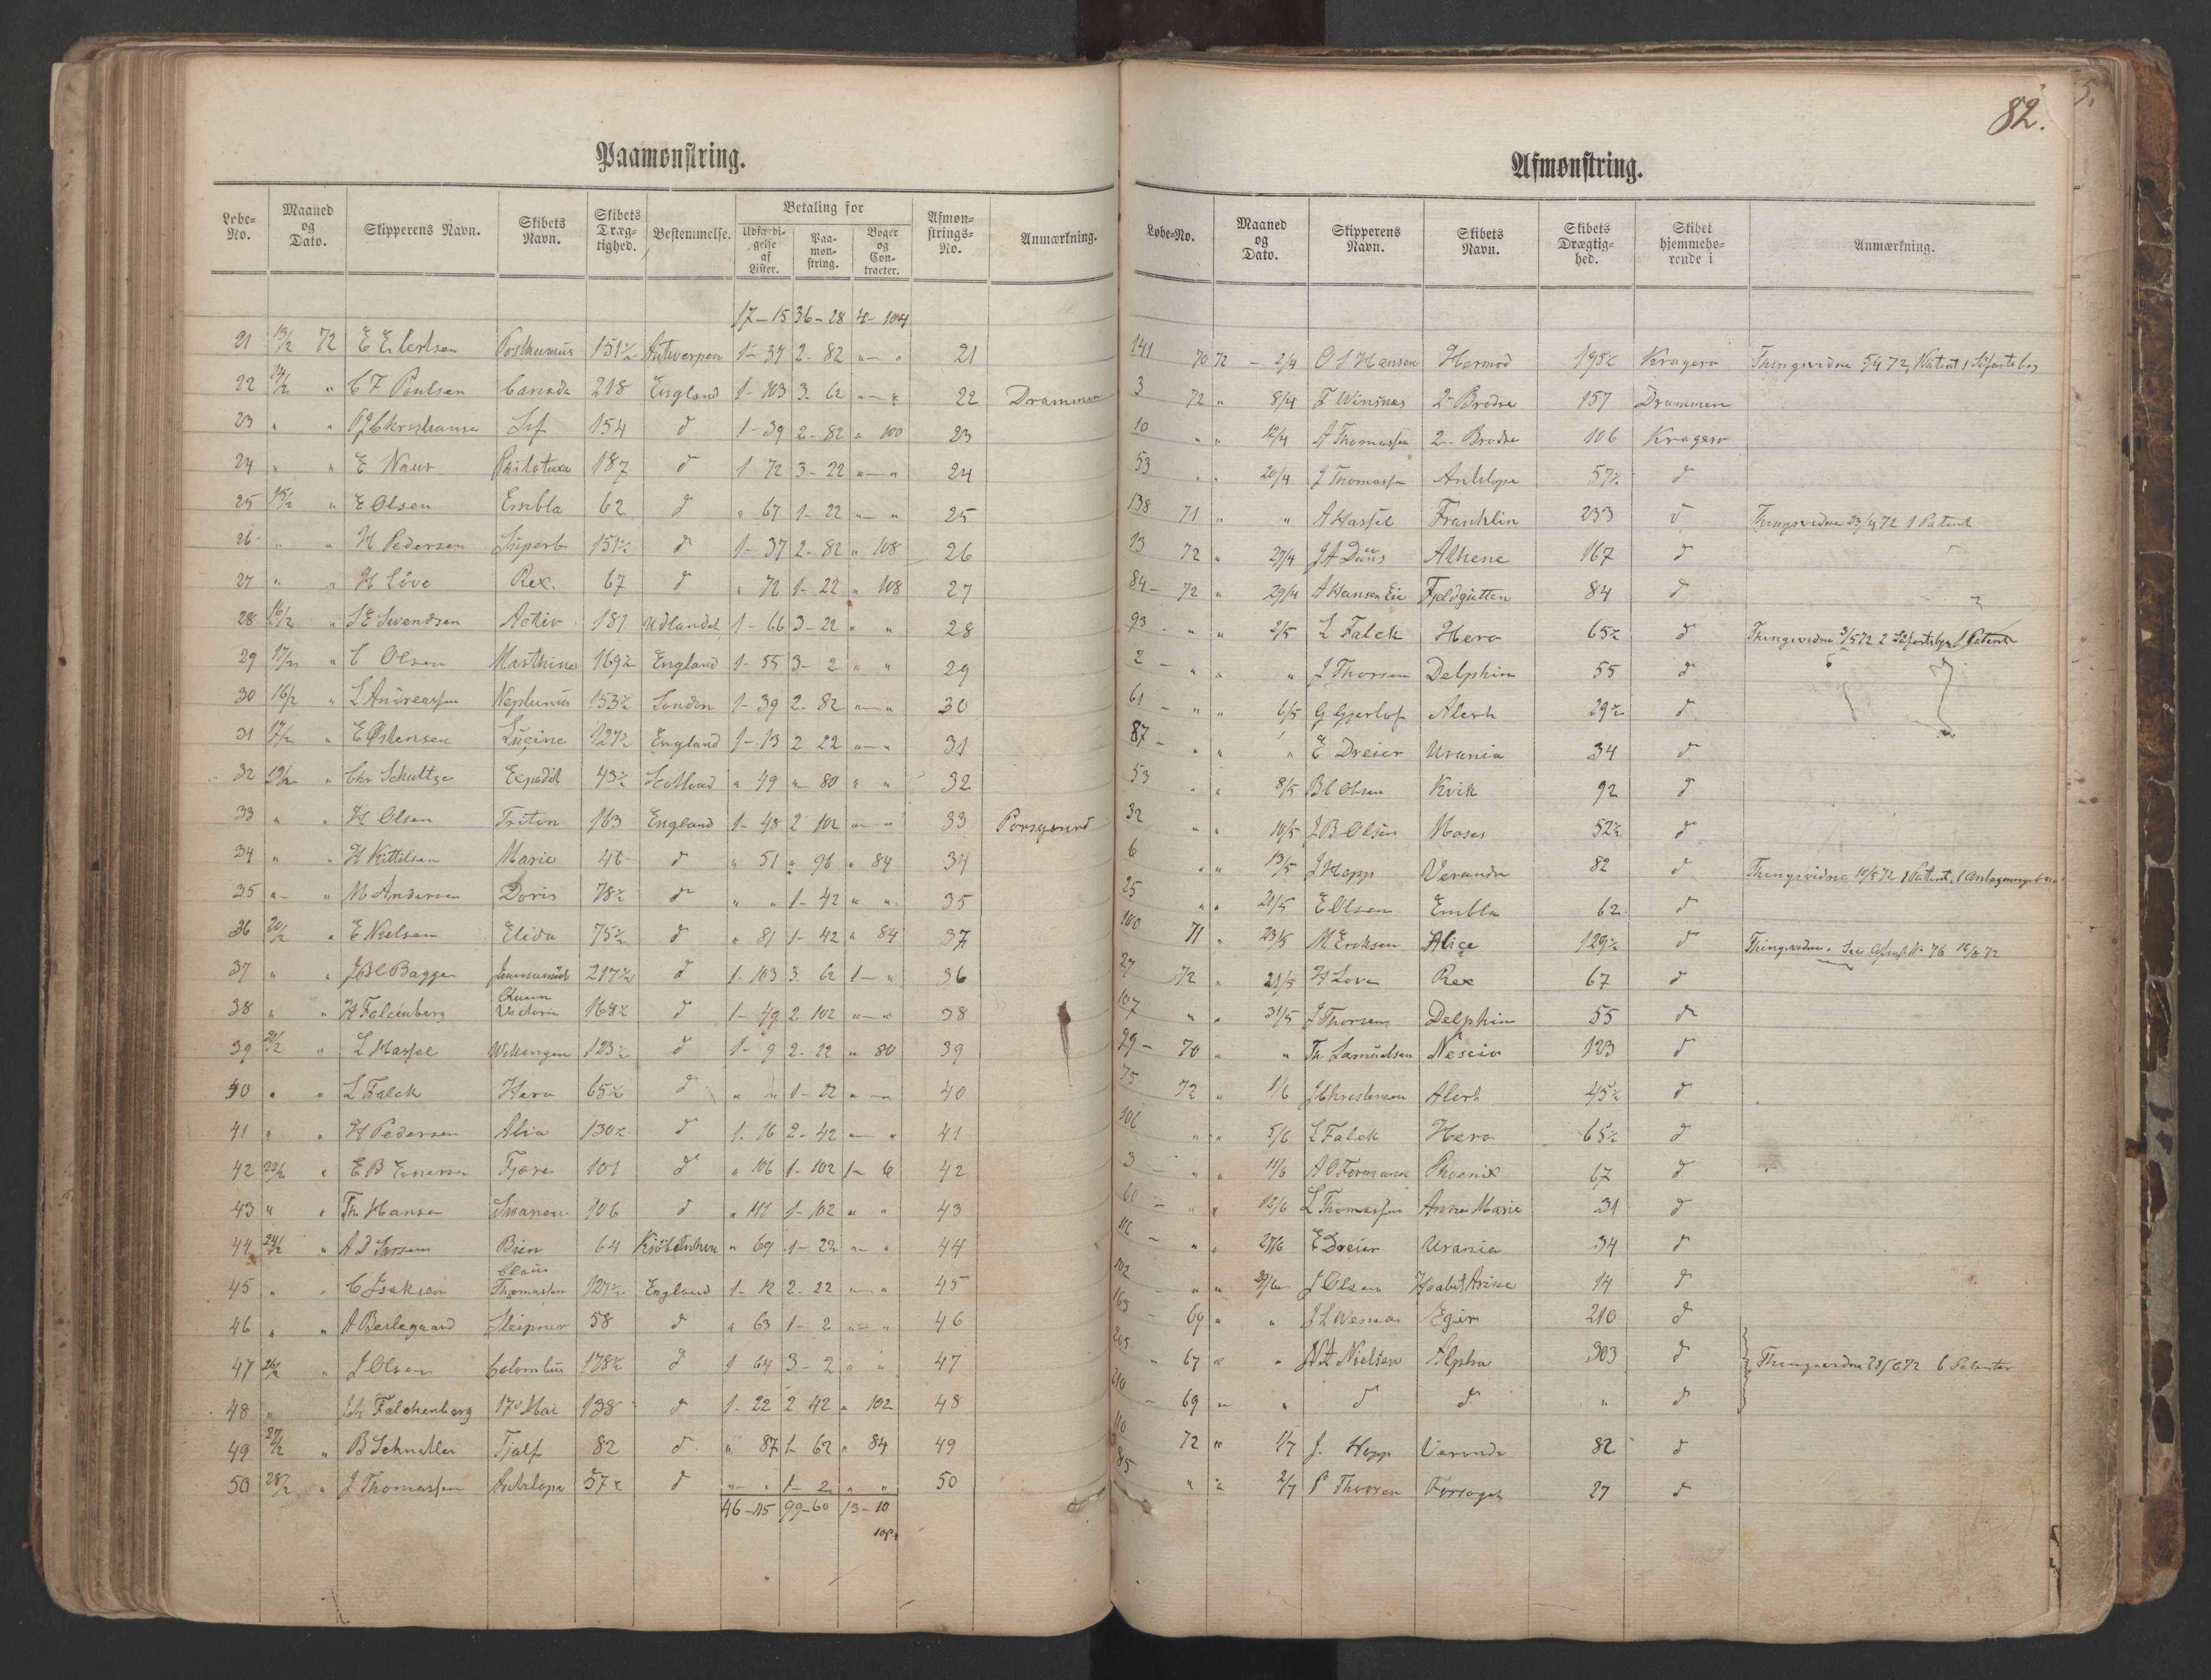 82.
Paamønstring.
Løbe-No. Maaned og Dato. Skipperens Navn. Skibets Navn. Skibets Drægtighed. Bestemmelse. Betaling for Udfærdigelse af Lister. Paamønstring. Bøger og Contracter. Afmønstrings-No. Anmærkning.
17-15 36-28 4-104
21 13/2 72 E Eilertsen Posthumus 151½ Antwerpen 1-37 2-82 " " 21
22 14/2 " C F Poulsen Canada 218 England 1-103 3-62 " " 22 Drammen
23 " " Leif 154 d 1-39 2-82 " 100 23
24 " " E Naur 187 d 1 72 3-22 " " 24
25 15/2 " E Olsen Embla 62 d " 67 1-22 " " 25
26 " " H Pedersen Superb 151½ d 1-37 2-82 " 108 26
27 " " H Löve Rex. 67 d " 72 1-22 " 108 27
28 16/2 " S E Svendsen Activ 181 Udlandet 1-66 3-22 " " 28
29 17/2 " C Olsen Marthine 169½ England 1-55 3-2 " " 29
30 16/2 " L Andreassen Neptunus 153½ London 1-39 2-82 " " 30
31 17/2 " E Østensen Lucine 127½ England 1-13 2 22 " " 31
32 19/2 " Chr Schultze Expedit 43½ Scotland " 49 " 80 " " 32
33 " " H Olsen Triton 163 England 1-48 2 102 " " 33 Porsgrund
34 " " H Kittilsen Marie 46 d " 51 " 96 " 84 34
35 " " M Andersen Doris 78½ d " " 1-42 " " 35
36 20/2 " E Nielsen Elida 75½ d " 81 1-42 " 84 37
37 " " J B C Bagge 217½ d 1-103 3 62 1- " 36
38 " " H Falkenberg Queen Victoria 168½ d 1-49 2 102 " " 38
39 21/2 " L Hassel Wikingen 123½ d 1-9 2-22 " 80 39
40 " " L Falck Hero 65½ d " " 1-22 " " 40
41 " " H Pedersen Alia 130½ d 1-16 2-42 " " 41
42 22/2 " E B Fjære 101 d " 106 1-102 1- 6 42
43 " " Th Hansen Svanen 106 d " 111 1-102 " " 43
44 24/2 " A D Bien 64 Kjöbenhavn " 69 1-22 " " 44
45 " " C Isaksen Claus Thomassen 127½ England 1-12 2-22 " " 45
46 " " A Berlegaard Sleipner 58 d " 63 1-2 " " 46
47 26/2 " J Olsen Colombus 178½ d 1 64 3-2 " " 47
48 " Joh Falchenberg 17de Mai 138 d 1-22 2 42 " 102 48
49 27/2 " B Schnitler Tjalf 82 d " 87 1-62 " 84 49
50 28/2 " J Thomassen Antelope 57½ d " " 1-2 " " 50
46-115 99-60 13-10
Afmønstring.
Løbe-No. Maaned og Dato. Skipperens Navn. Skibets Navn. Skibets Drægtighed. Skibet hjemmehørende i Anmærkning.
141 70 72 - 2/4 O S Hansen Hermod 195½ Kragerø Thingsvidne 5/4 72, 1 Patent 1 Söfartsbog
3 72 " 8/4 F Winsnes 2 Brødre 157 Drammen
10 " " 12/4 A Thomassen 2 Brødre 106 Kragerø
53 " " 20/4 J Thomassen Antelope 57½ d
138 71 " " A Hassel Franklin 233 d Thingsvidne 23/4 72 1 Patent
13 72 " 27/4 J A Duus Athene 167 d
84- 72 " 29/4 A Hansen Eie Fjeldgutten 84 d
93 - " " 2/5 L Falck Hero 65½ d Thingsvidne 3/5 72 2 1 Patent
2 - " " " J Thorsen Delphin 55 d
61 - " " 6/5 G Gjerlof Alert 29½ d
87 - " " " E Dreier Urania 34 d
53 " " 8/5 B C Olsen Kvik 92 d
32 " " 10/5 J B Olsen Moses 52½ d
6 " " 13/5 J Hopp Veranda 82 d Thingsvidne 10/5 72 1 Patent, 1
25 " " 21/5 E Olsen Embla 62 d
100 71 " 23/5 M Eriksen Alice 129½ d Thingsvidne. See No 76 16/8 72
27 72 " 29/5 H Love Rex 67 d
107 " " 31/5 J Thorsen Delphin 55 d
99- 70 " " Th Samuelsen Nescio 123 d
75 72 " 1/6 J Christensen Alert 45½ d
106 " " 5/6 L Falck Hero 65½ d
3 - " " 11/6 A O Formann Phoenix 67 d
60 - " " 12/6 L Thomassen Anne Marie 31 d
116 - " " 27/6 E Dreier Urania 34 d
102 " " 29/6 J Olsen Haabet Arine 14 d
165 - 69 " " J L Wesmas Egir 210 d
205 - 67 " " N A Nielsen Alpha 303 d Thingsvidne 28/6 72 6 Patenter
210 - 69 " " d d " d
110 72 " 1/7 J. Hopp Veranda 82 d
85 " " 2/7 P Thorsen Forsøget 27 d